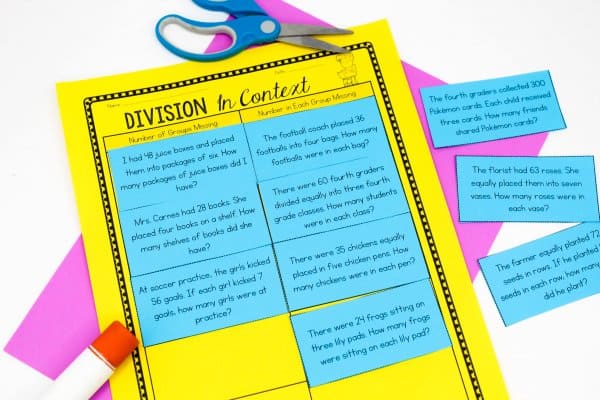 Name
Date
DIVISION In Context
Number of Groups Missing
Number in Each Group Missing
I had 48 juice boxes and placed
them into packages of six. How
many packages of juice boxes did I
have?
The football coach placed 36
footballs into four bags. How many
footballs were in each bag?
Mrs. Carnes had 28 books. She
placed four books on a shelf. How
many shelves of books did she
have?
There were 60 fourth graders
divided equally into three fourth
grade classes. How many students
were in each class?
At soccer practice, the girls kicked
56 goals. If each girl kicked 7
goals, how many girls were at
practice?
There were 35 chickens equally
placed in five chicken pens. How
many chickens were in each pen?
There were 24 frogs sitting on
three lily pads. How many frogs
were sitting on each lily pad?
The fourth graders collected 300
Pokémon cards. Each child received
three cards. How many friends
shared Pokémon cards?
The florist had 63 roses. She
equally placed them into seven
vases. How many roses were in
each vase?
The farmer equally planted 72
seeds in rows. If he planted
seeds in each row, how many
did he plant?